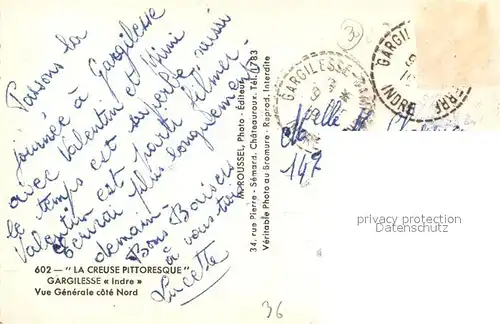 Passons la
journée à Gargilesse
avec Valentin et Mimi
le temps est superbe aussi
Valentin est parti filmer.
écrirai plus longuement
demain -
Bons Baisers
à vous tous
Lucette
602 — "LA CREUSE PITTORESQUE"
GARGILESSE « Indre »
Vue Générale côté Nord
ROUSSEL, Photo - Editeur
34, rue Pierre - Sémard, Châteauroux. Tél. 783
Véritable Photo au Bromure - Reprod. Interdite
GARGILESSE
GARGIL
INDRE
Mlle
147
36
privacy protection
AKPool.de
privacy protection